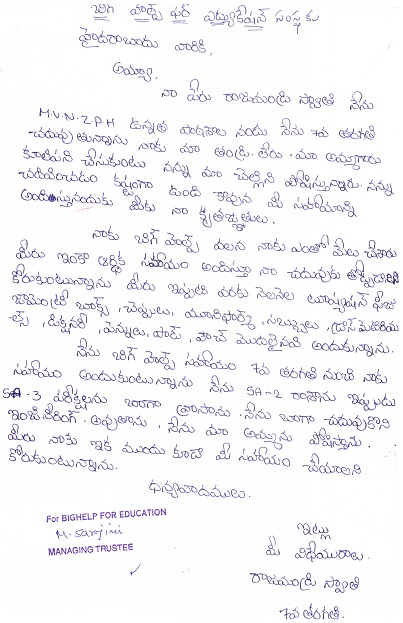 బిగ్ హెల్ప్ ఫర్ ఎడ్యుకేషన్ సంస్థకు
హైదరాబాదు వారికి,
అయ్యా,
నా పేరు రాజమండ్రి స్వాతి నేను
M.V.N.Z.P.H ఉన్నత పాఠశాల నందు నేను 7వ తరగతి
చదువుతున్నాను నాకు మా తండ్రి లేరు. మా అమ్మగారు
కూలిపని చేసుకుంటు నన్ను మా చెల్లిని పోషిస్తున్నారు. నన్ను
చదివించడం కష్టంగా ఉంది కావున మీ సహాయాన్ని
అందిస్తునందుకు మీకు నా కృతజ్ఞతలు.
నాకు బిగ్ హెల్ప్ వలన నాకు ఎంతో మేలు చేశారు
మీరు ఇంకా ఆర్థిక సహాయం అందిస్తూ నా చదువుకు తోడ్పడాలని
కోరుకుంటున్నాను మీరు ఇప్పటి వరకు నెలనెల ట్యూషన్ ఫీజు
జామెంట్రీ బాక్స్, చెప్పులు, యూనిఫార్మ్స్, సబ్బులు, డ్రాస్ మెటిరియ
-ల్స్, డిక్షనరీ, పెన్నులు, పాడ్, పౌచ్ మొదలైనవి అందుకున్నాను.
నేను బిగ్ హెల్ప్ సహాయం 7వ తరగతి నుంచి నాకు
సహాయం అందుకుంటున్నాను నేను SA-2 రాశాను ఇప్పుడు
SA-3 పరీక్షలను బాగా వ్రాసాను. నేను బాగా చదువుకొని
ఇంజినీరింగ్ అవుతాను. నేను మా అమ్మను పోషిస్తాను.
మీరు నాకు ఇక ముందు కూడా మీ సహాయం చేయాలని
కోరుకుంటున్నాను.
ధన్యవాదములు.
For BIGHELP FOR EDUCATION
M. Sarojini
MANAGING TRUSTEE
ఇట్లు
మీ విధేయురాలు.
రాజమండ్రి స్వాతి
7వ తరగతి.